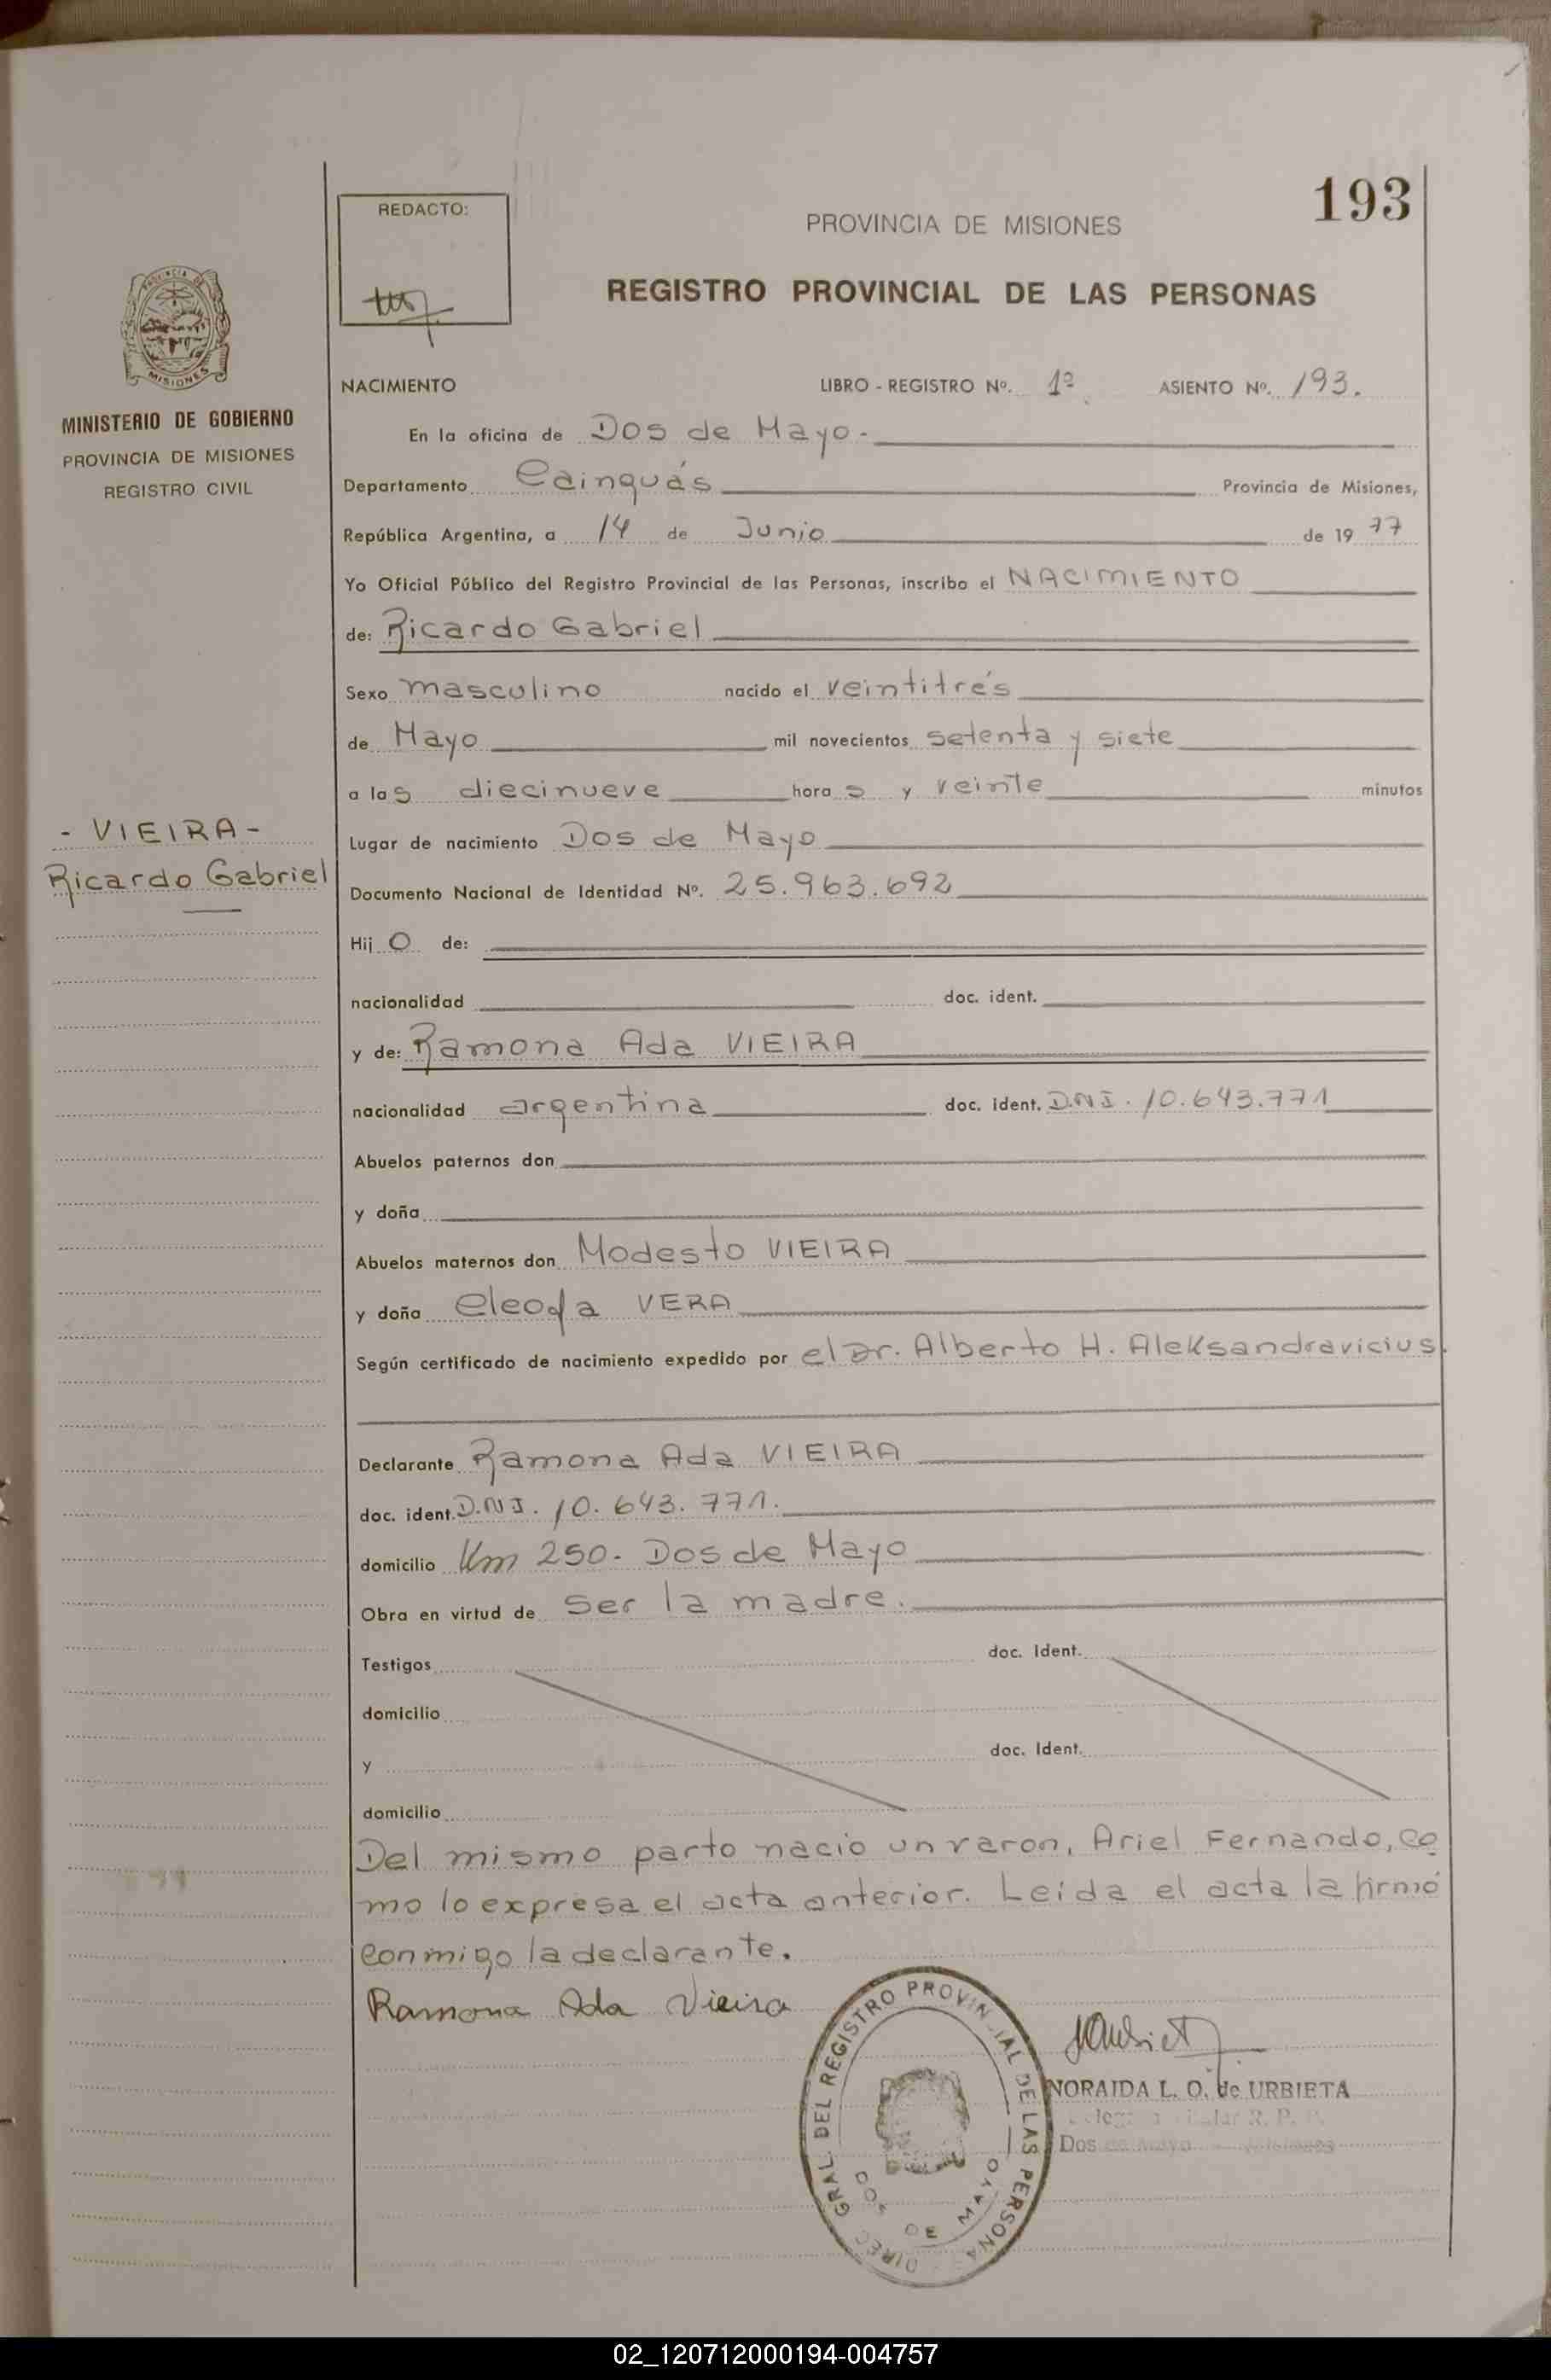 193
REDACTO:
PROVINCIA DE MISIONES
REGISTRO PROVINCIAL DE LAS PERSONAS
MISIONES
MINISTERIO DE GOBIERNO
PROVINCIA DE MISIONES
REGISTRO CIVIL
NACIMIENTO LIBRO - REGISTRO Nº. 1º ASIENTO Nº. 193.
En la oficina de Dos de Mayo.-
Departamento Cainguás Provincia de Misiones,
República Argentina, a 14 de Junio de 19 77
Yo Oficial Público del Registro Provincial de las Personas, inscribo el NACIMIENTO
de: Ricardo Gabriel
Sexo masculino nacido el veintitrés
de Mayo mil novecientos setenta y siete
a las diecinueve horas y veinte minutos
- VIEIRA -
Ricardo Gabriel
Lugar de nacimiento Dos de Mayo
Documento Nacional de Identidad Nº. 25.963.692
Hijo de:
nacionalidad doc. ident.
y de: Ramona Ada VIEIRA
nacionalidad argentina doc. ident. D.N.I. 10.643.771
Abuelos paternos don
y doña
Abuelos maternos don Modesto VIEIRA
y doña VERA
Según certificado de nacimiento expedido por el Dr. Alberto H. Aleksandravicius.
Declarante Ramona Ada VIEIRA
doc. ident. D.N.I. 10.643.771.
domicilio Km 250. Dos de Mayo
Obra en virtud de ser la madre.
Testigos doc. Ident.
domicilio
y doc. Ident.
domicilio
Del mismo parto nacio un varon, Ariel Fernando, co
mo lo expresa el acta anterior. Leída el acta la firmó
conmigo la declarante.
Ramona Ada Vieira
DIREC GRAL. DEL REGISTRO PROVINCIAL DE LAS PERSONA
DOS DE MAYO
NORAIDA L. O. de URBIETA
R. P.
Dos de Mayo - Misiones
02_120712000194-004757